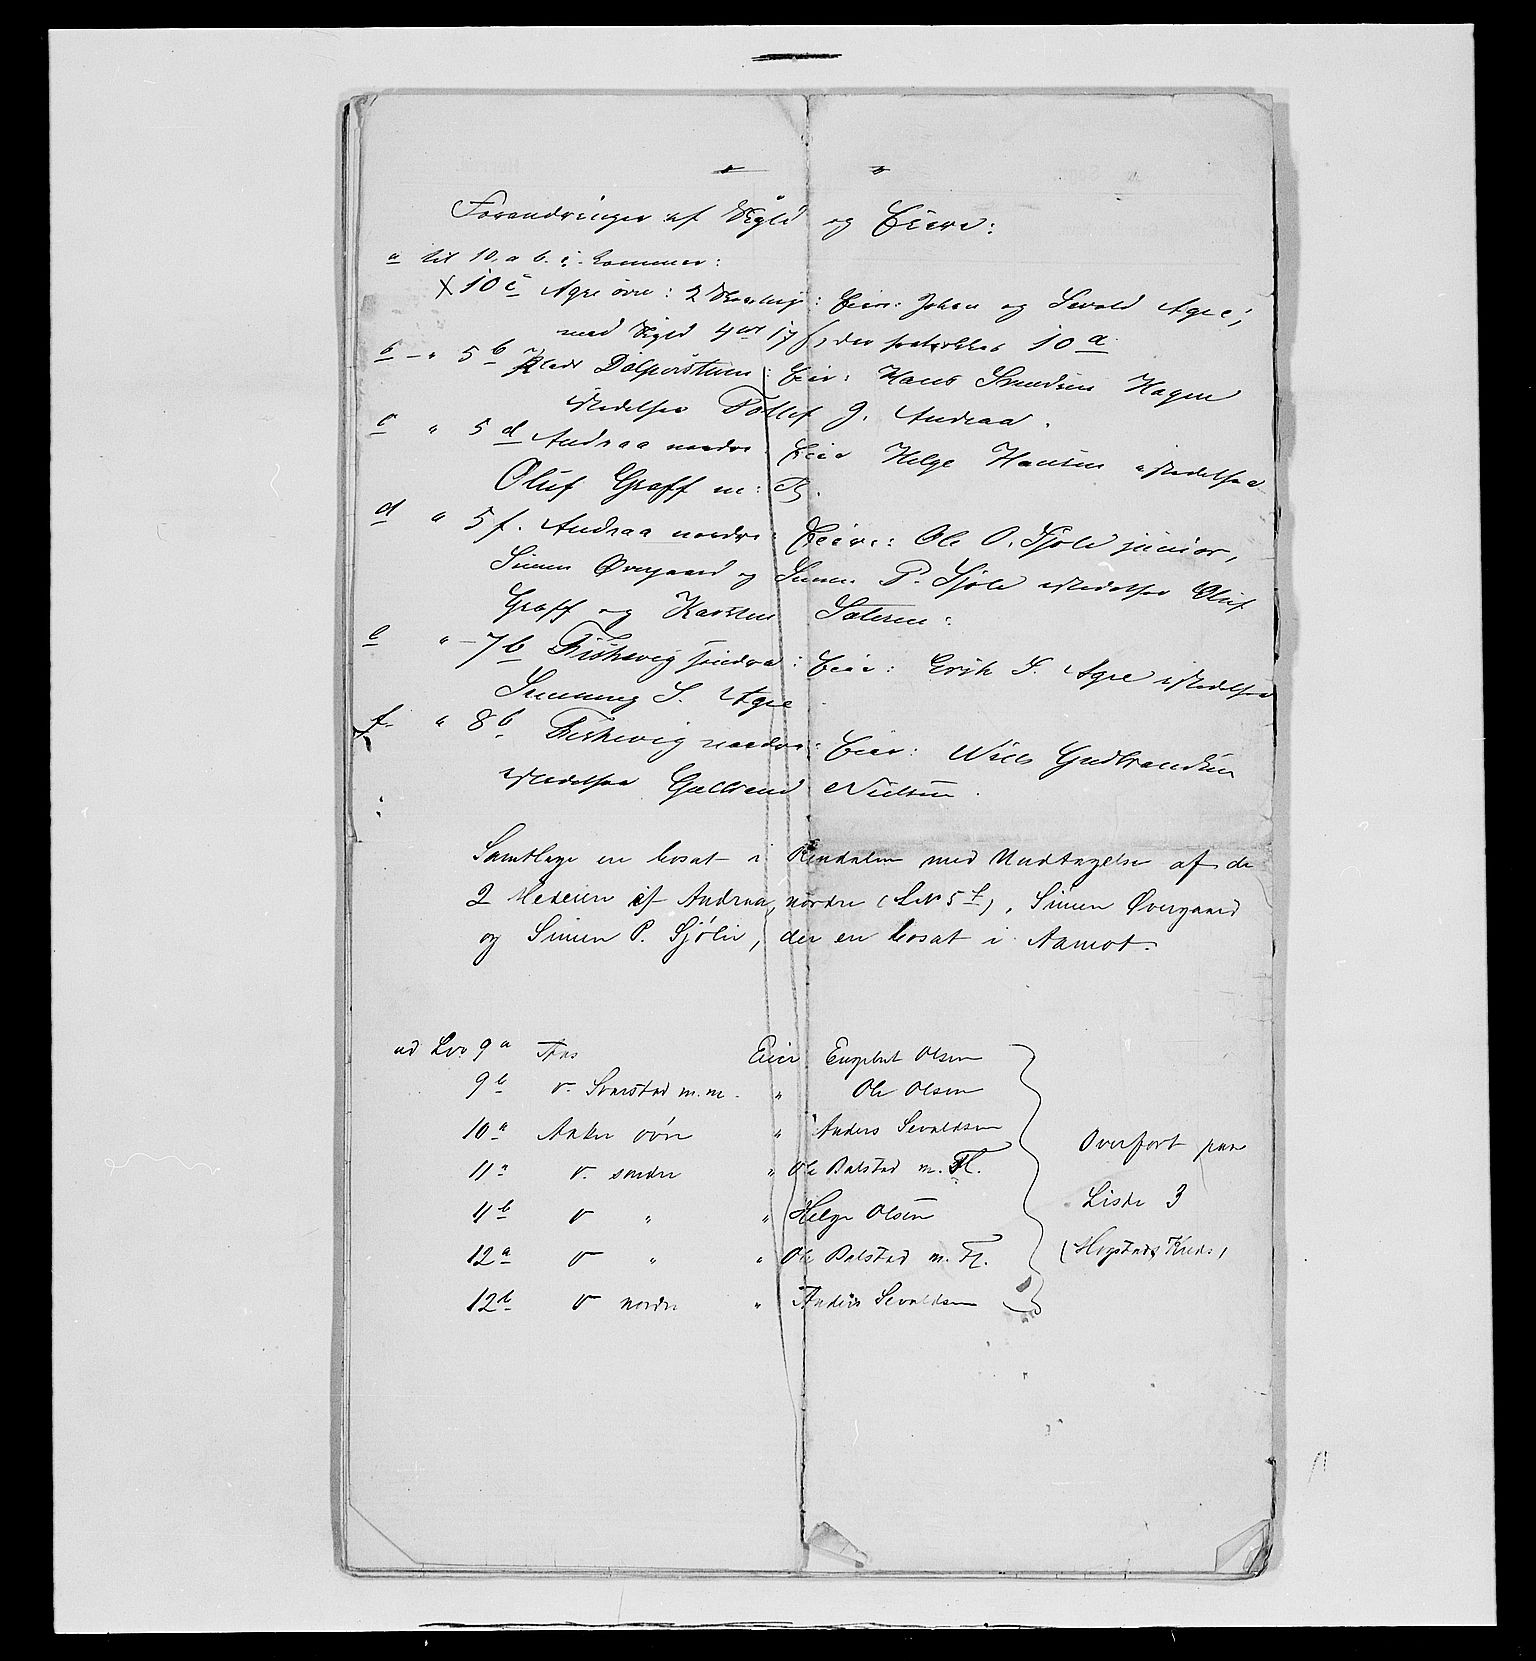 Forandringer af Skyld og Eiere:
a til 10. a b. c. kommer:
X 10 c Agre øvre: 2 Eier: Johan og Sevald Agre;
med Skyld 4 ort 17 ß, der fratrækkes 10 a.
b - " 5 b Eier: Hans Knudsen Hagen
istedetfor Tollef J. Andraa.
c " 5 d Andraa nordre Eier Helge Hansen istedetfor
Oluf Graff m:
d " 5 f. Andraa nordre: Eiere: Ole O. Sjøli junior,
Simen Øvergaard og Simen P. Sjøli istedetfor Oluf
Graff og Karsten
e " - 7 b Fiskevig søndre: Eier: Erik S. Agre istedetfor
S. Agre.
f. " 8 b Fiskevig nordre: Eier: Niels Gudbrandsen
istedetfor Gulbrand Nielsen.
Samtlige er bosat i Rendalen med Undtagelse af de
2 Medeiere af Andraa nordre (LNo 5 f), Simen Øvergaard
og Simen P. Sjølie, der er bosat i Aamot.
ad Lno 9 a Aas Eier Engebret Olsen
9 b v. m. m. " Ole Olsen
10 a Aaker øvre " Anders Sevaldsen
11 a v. søndre " Ole Balstad m. Fl.
11 b v " " Helge Olsen
12 a v " " Ole Balstad m. Fl.
12 b v nordre " Anders Sevaldsen
Overført paa
Liste 3
(Kreds)